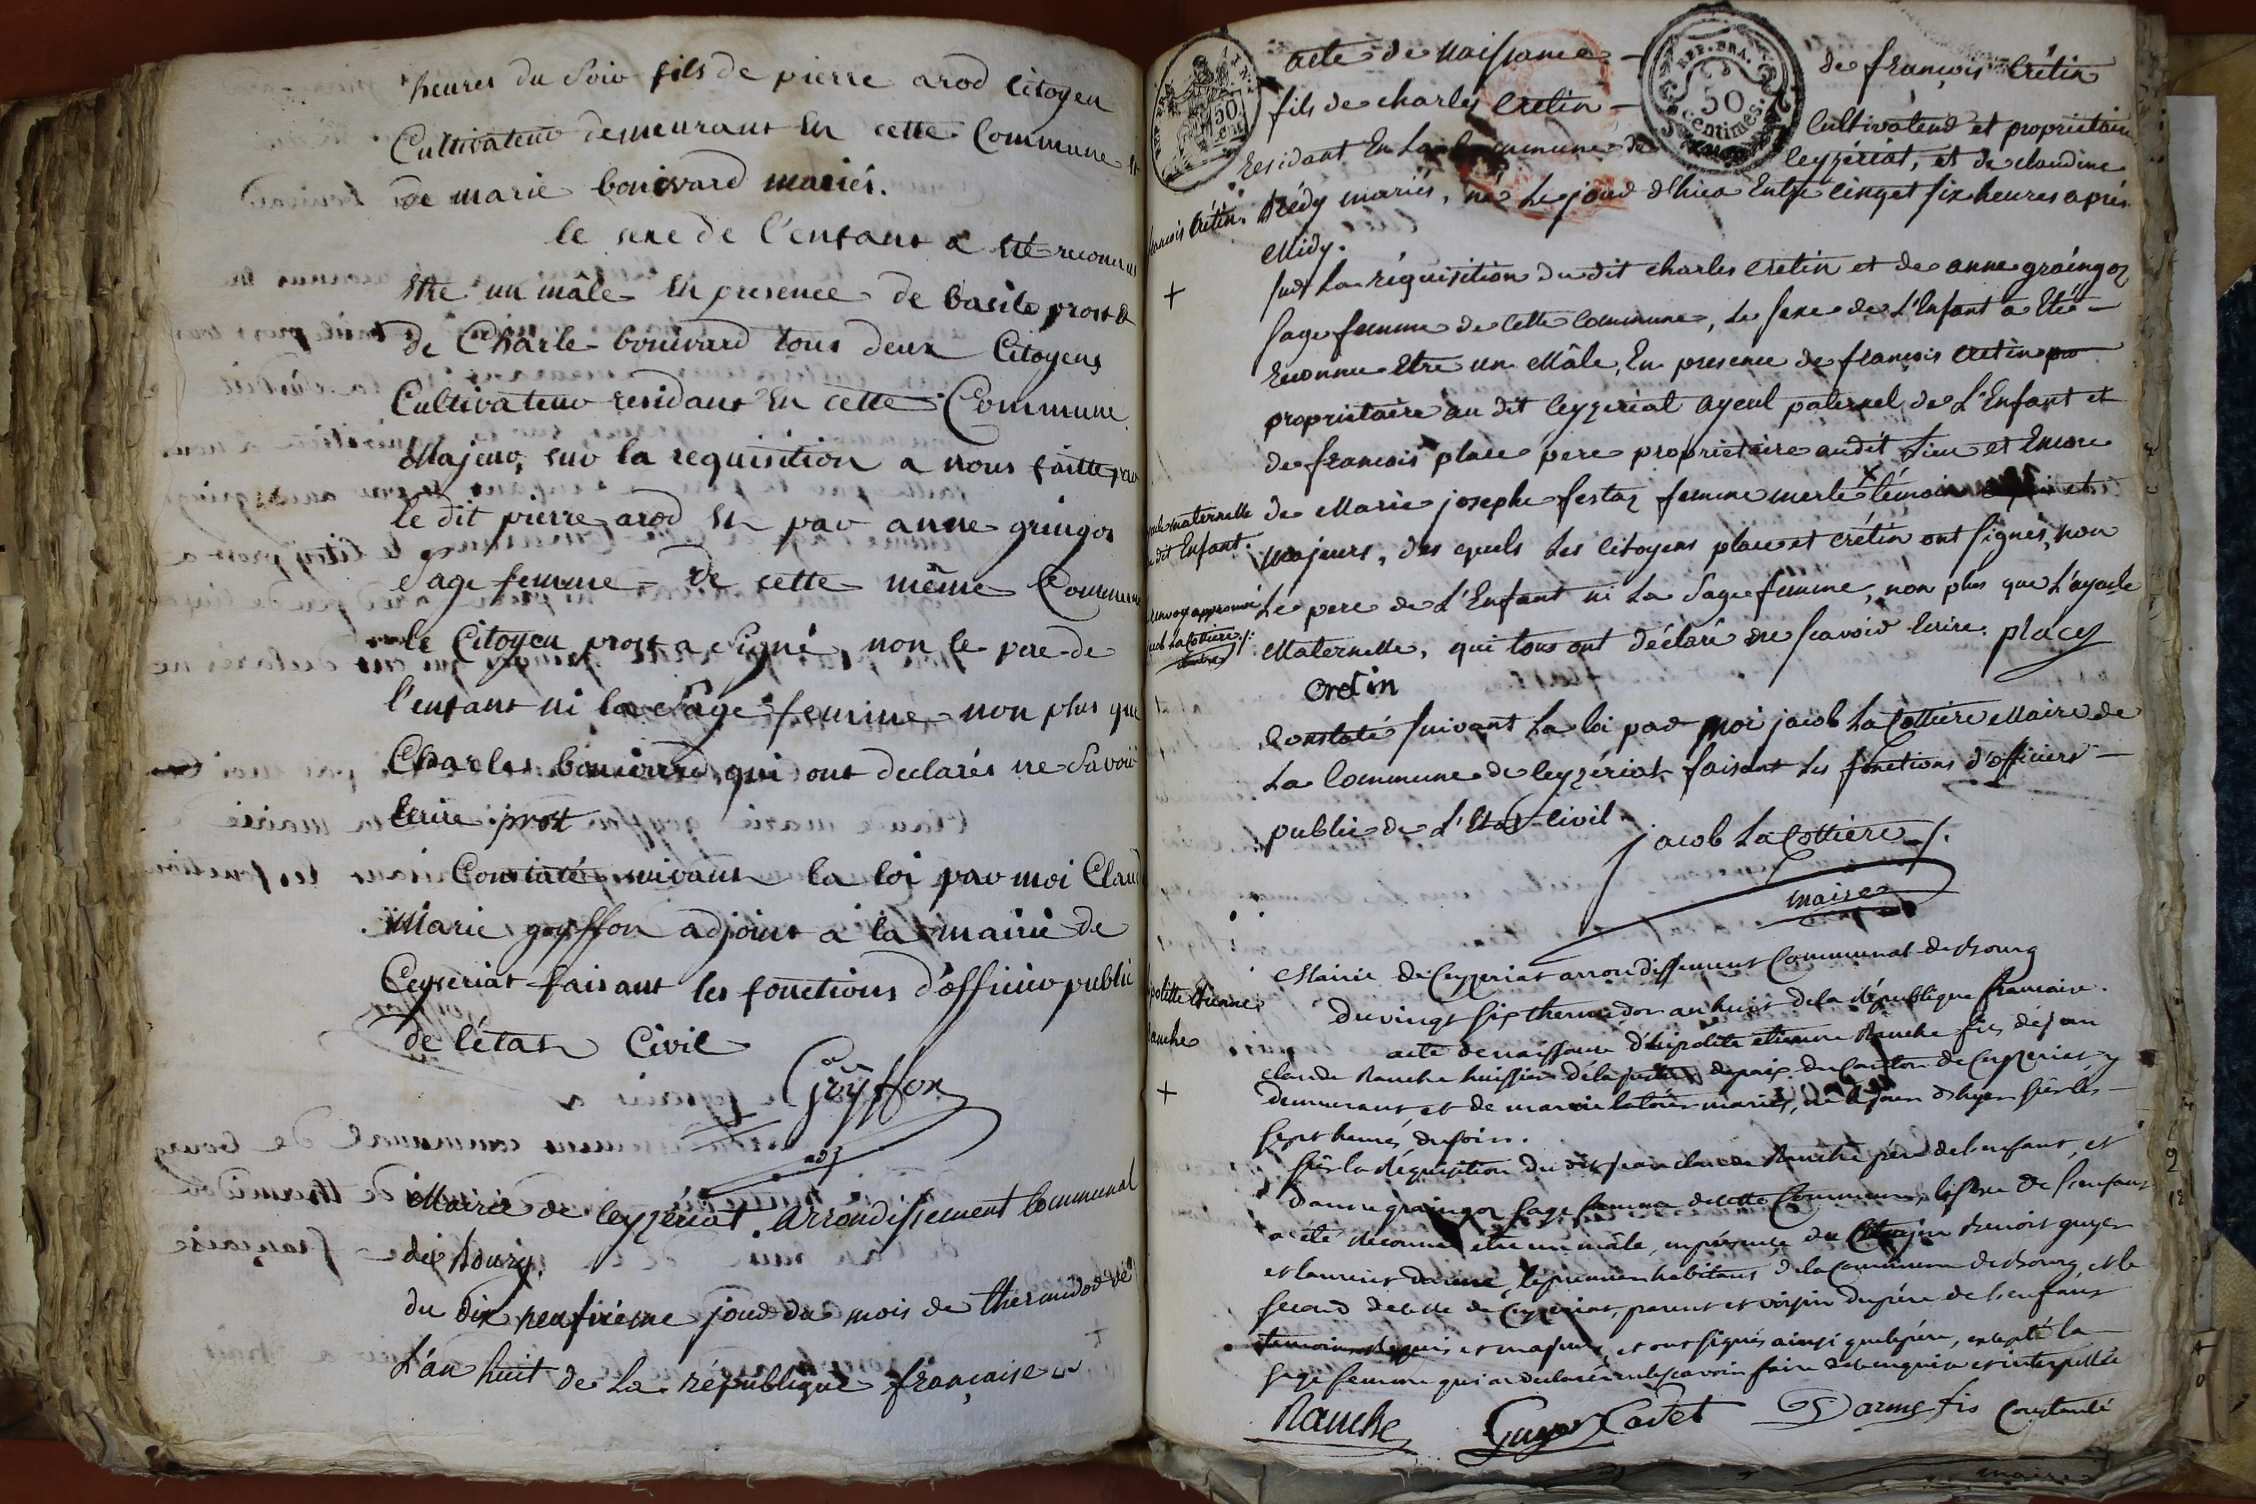 heures du Soir fils de pierre arod Citoyen
Cultivateur demeurant en cette Commune et
de marie bouvard mariés.
le sexe de l'enfant a été reconnus
etre un mâle en presence de basile prost &
de Charle bouivard tous deux Citoyens
Cultivateur residant en cette Commune
Majeur, sur la requisition a nous faitte par
le dit pierre arod et par anne gringoz
Sage femme de cette même Commune
le Citoyen prost a Signé non le pere de
l'enfant ni la Sage femme non plus que
Charles bouivard qui ont declarés ne Savoir
Ecrire prost
Constaté suivant la loi par moi Claude
Marie goyffon adjoint a la mairie de
Ceyseriat faisant les fonctions d'officier public
de l'état Civil
Goyffon
adj
Mairie de Ceyzériat arrondissement Communal
de bourg.
du dix neufvième jour du mois de thermidor de
L'an huit de la république française
REP. FRA.
50
centimes.
acte de naissance de françois Crétin
fils de charles Cretin Cultivateur et proprietaire
résidant En la Commune de Ceyzériat, et de claudine
Brédy mariés, né le jour d'hier Entre cinq et six heures après
Midy.
françois Crétin.
+
sur la réquisition du dit charles Cretin et de anne graingoz
sage femme de cette Commune, le sexe de L'Enfant a Eté
reconnu Etre un Mâle, En presence de francois Cretin pro
proprietaire au dit Ceyzeriat ayeul paternel de L'Enfant et
de francois place pere proprietaire audit Lieu et Encore
de Marie josephe festaz femme merle témoin et
ayeule maternelle
du dit Enfant
majeurs, des quels les Citoyens place et crétin ont signés, non
Le pere de L'Enfant ni La Sage femme, non plus que L'ayeule
renvoy approuvé
jacob La Cottiere
maire
Maternelle, qui tous ont déclaré ne scavoir Ecrire. place
cretin
Constaté suivant La loi par moi jacob La Cottiere Maire de
La Commune de Ceyzériat faisant les fonctions d'officiers
public de L'Etat civil
jacob La Cottiere
maire
Mairie de Ceyzeriat arrondissement Communal de Bourg
Du vingt six thermidor an huit de la République francaise.
hypolitte Etienne
Ranche
+
acte de naissance d'hipolite etienne Ranche fils de jean
claude Ranche huissier de la justice de paix du Canton de Ceyzeriat y
demeurant et de marie mariés, né le jour d'hyer sur les
sept heures du soir.
sur la Réquisition du dit jean claude Ranche père de l'enfant, et
d'anne graingoz sage femme de cette Commune, le sexe de l'enfant
a été reconnu etre un mâle, en présence du Citoyen benoit guyer
et laurent darme, le premier habitant de la Commune de Bourg, et le
second de celle de Ceyzeriat, parent et voisin du père de l'enfant
temoins requis et majeurs, et ont signés ainsi que le père, excepté la
sage femme qui a declaré ne le scavoir faire de ce enquise et interpellée
Ranche Guyer Cadet Darme fis Constaté
maire